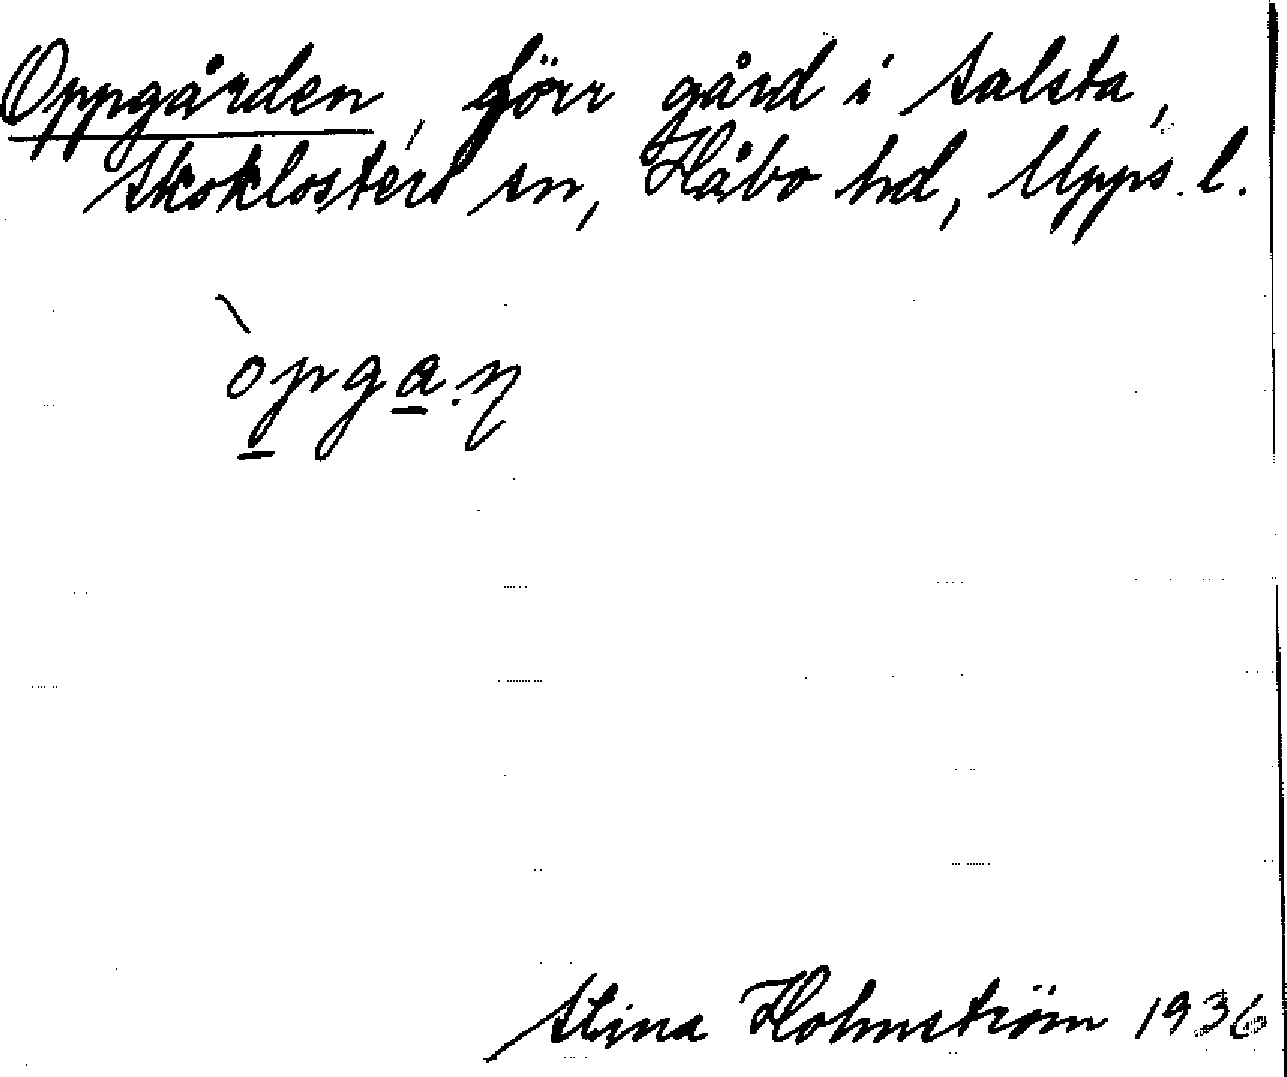 Oppgården, förr gård i Salsta,
Skoklosters sn, Håbo hd, Upps. l.
òpga.ɳ
Stina Holmström 1936